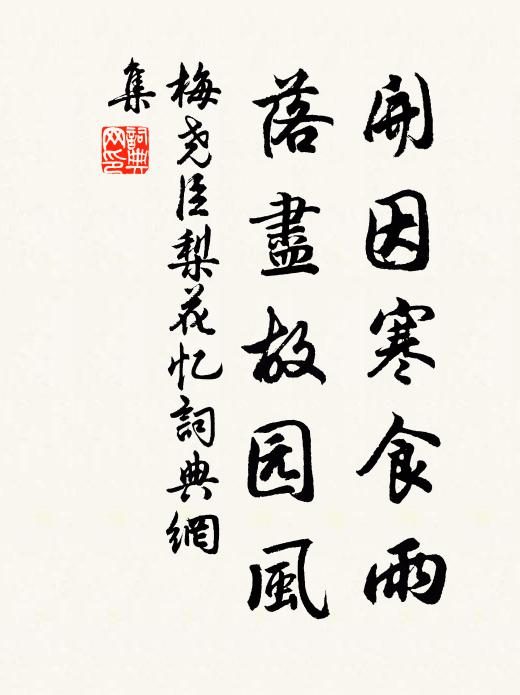 開因寒食雨
落盡故园風
梅尧臣梨花忆詞典網
集
詞典网印